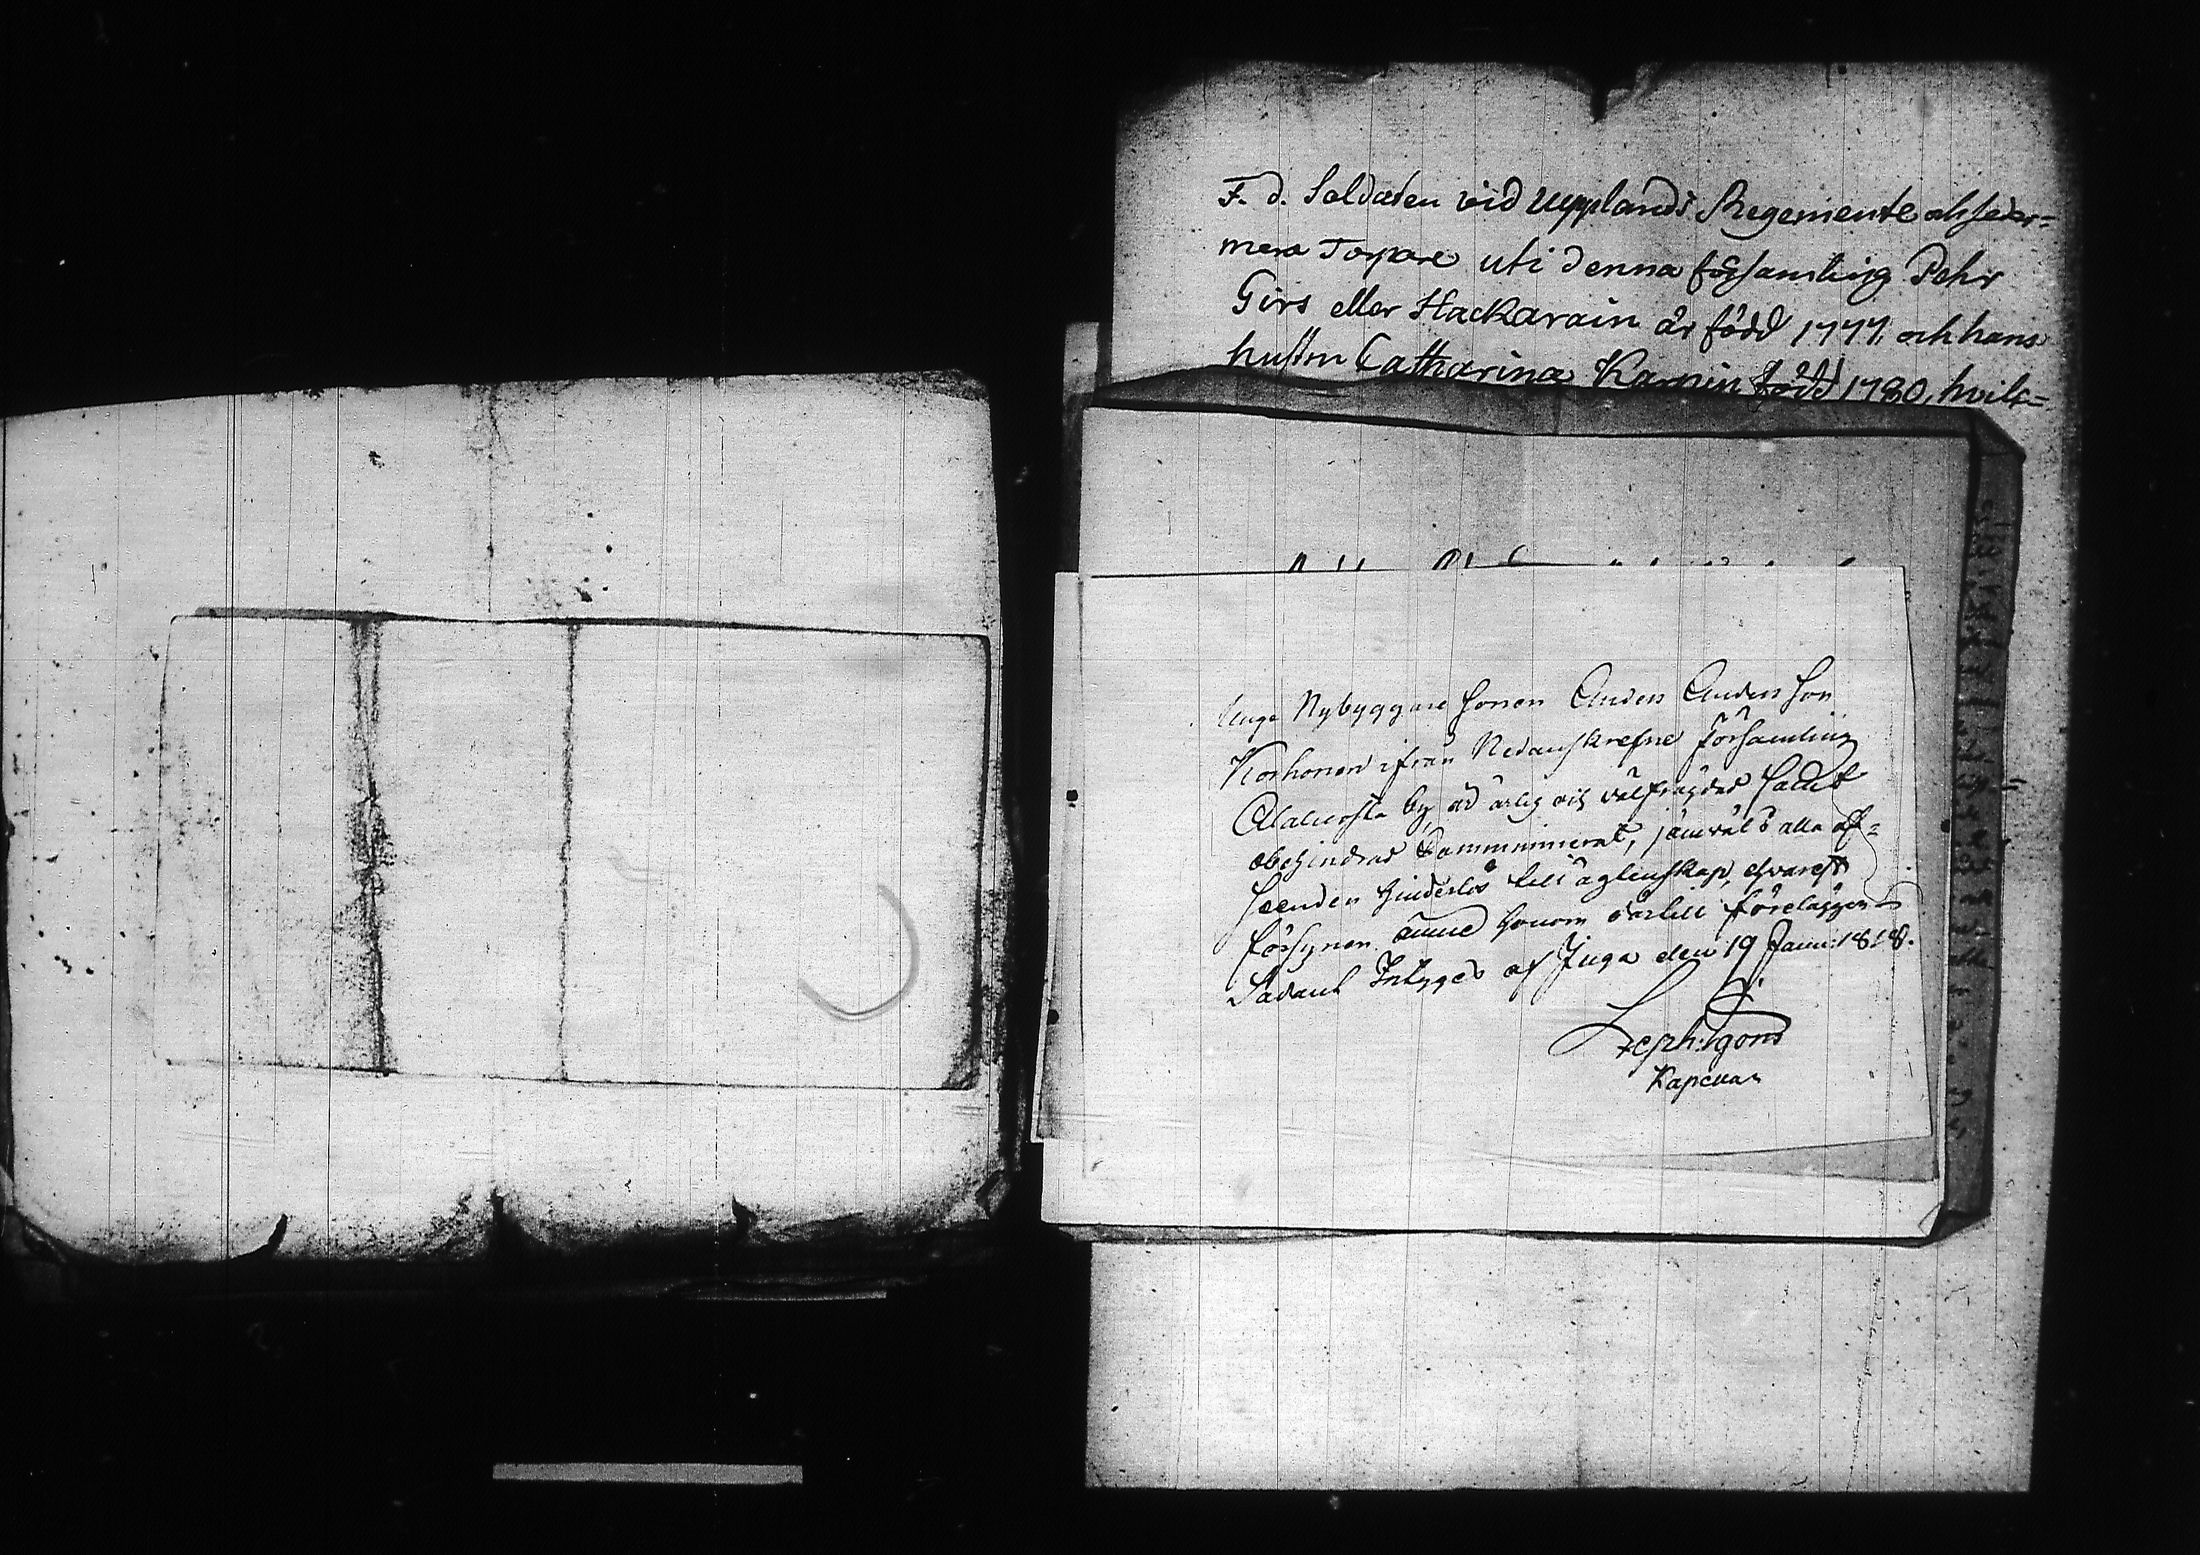 F. d. Soldaten vid Upplands Regemente och seder=
mera Torpare uti denna församling Pehr
Girs eller Hackarain är född 1777. och hans
hustru Catharina född 1780, hvilk=
Unge Nybyggare Sonen Anders Andersson
Korhonen ifrån Nedanskrefne Församling
by, är ärlig och välfrägdad samt
obehindrad Kommunicerat, jämväl i alla af=
seenden hinderlös till ägtenskap, hvarest
försynen ämne honom därtill
Sådant Intygas af Juga den 19 Janu: 1818.
Zeph: Tgons
Kapellan